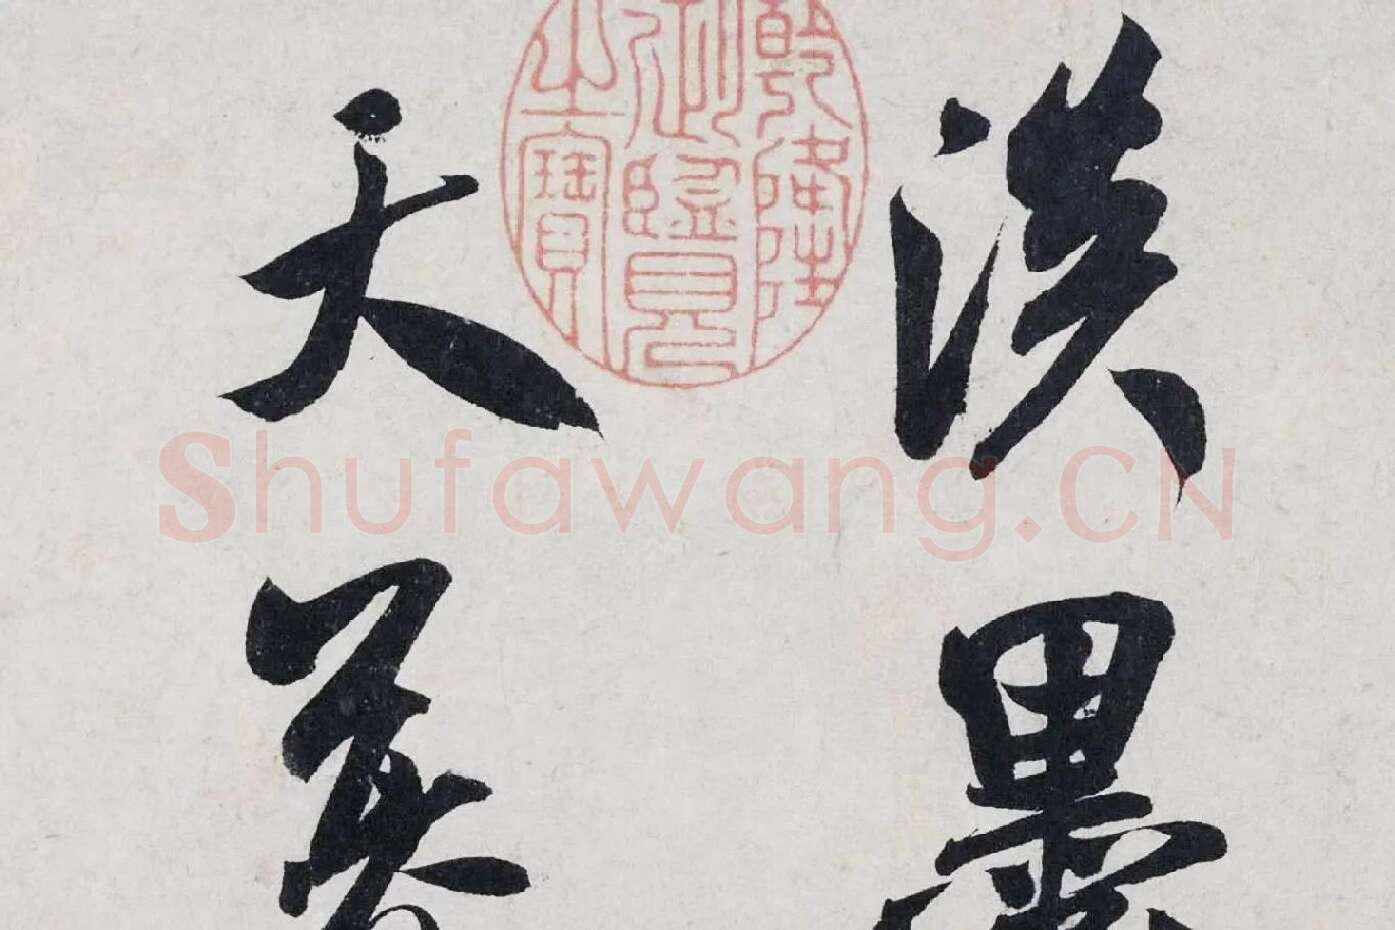 淡墨
天暮
乾隆
御覽
之寶
Shufawang.CN